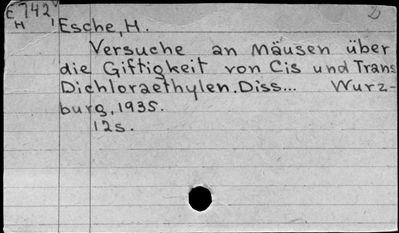 E742
H
Esche, H.
Versuche an Mäusen über
die Giftigkeit von Cis und Trans
Dichloraethylen. Diss... Wurz-
burg, 1935.
12s.